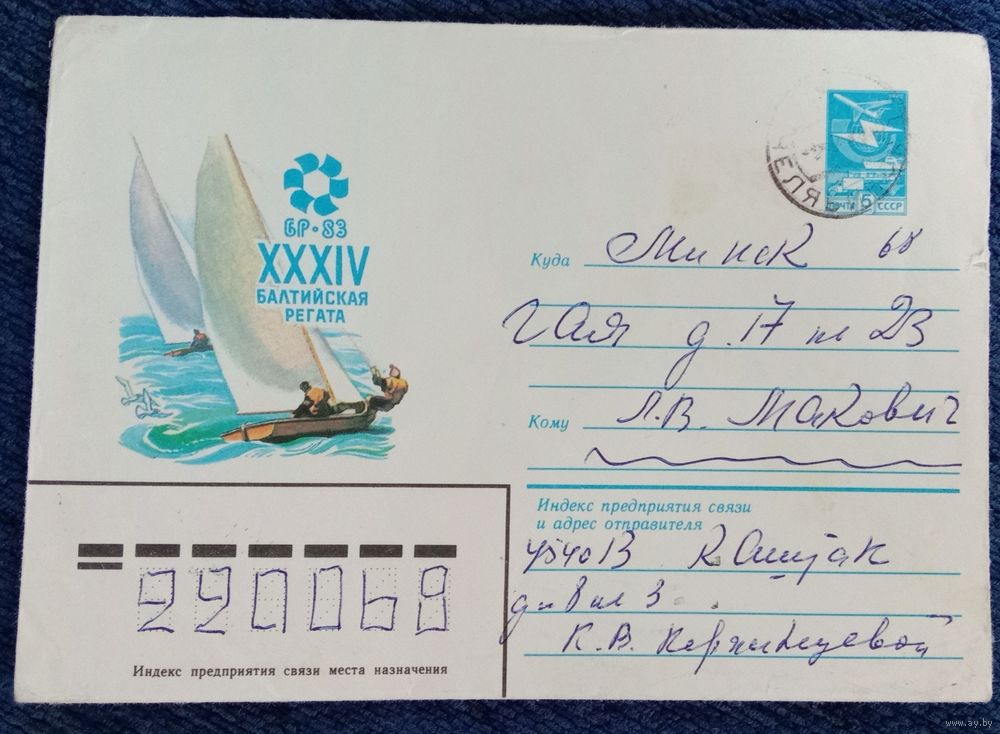 БР·83
XXXIV
БАЛТИЙСКАЯ
РЕГАТА
ЧЕЛЯ
ПОЧТА 5 СССР
Куда Минск 68
Гая д. 17 кв 23
Кому Л.В. Макович
Индекс предприятия связи
и адрес отправителя
454013
д 8 кв 3
К.В.
220068
Индекс предприятия связи места назначения
www.ay.by